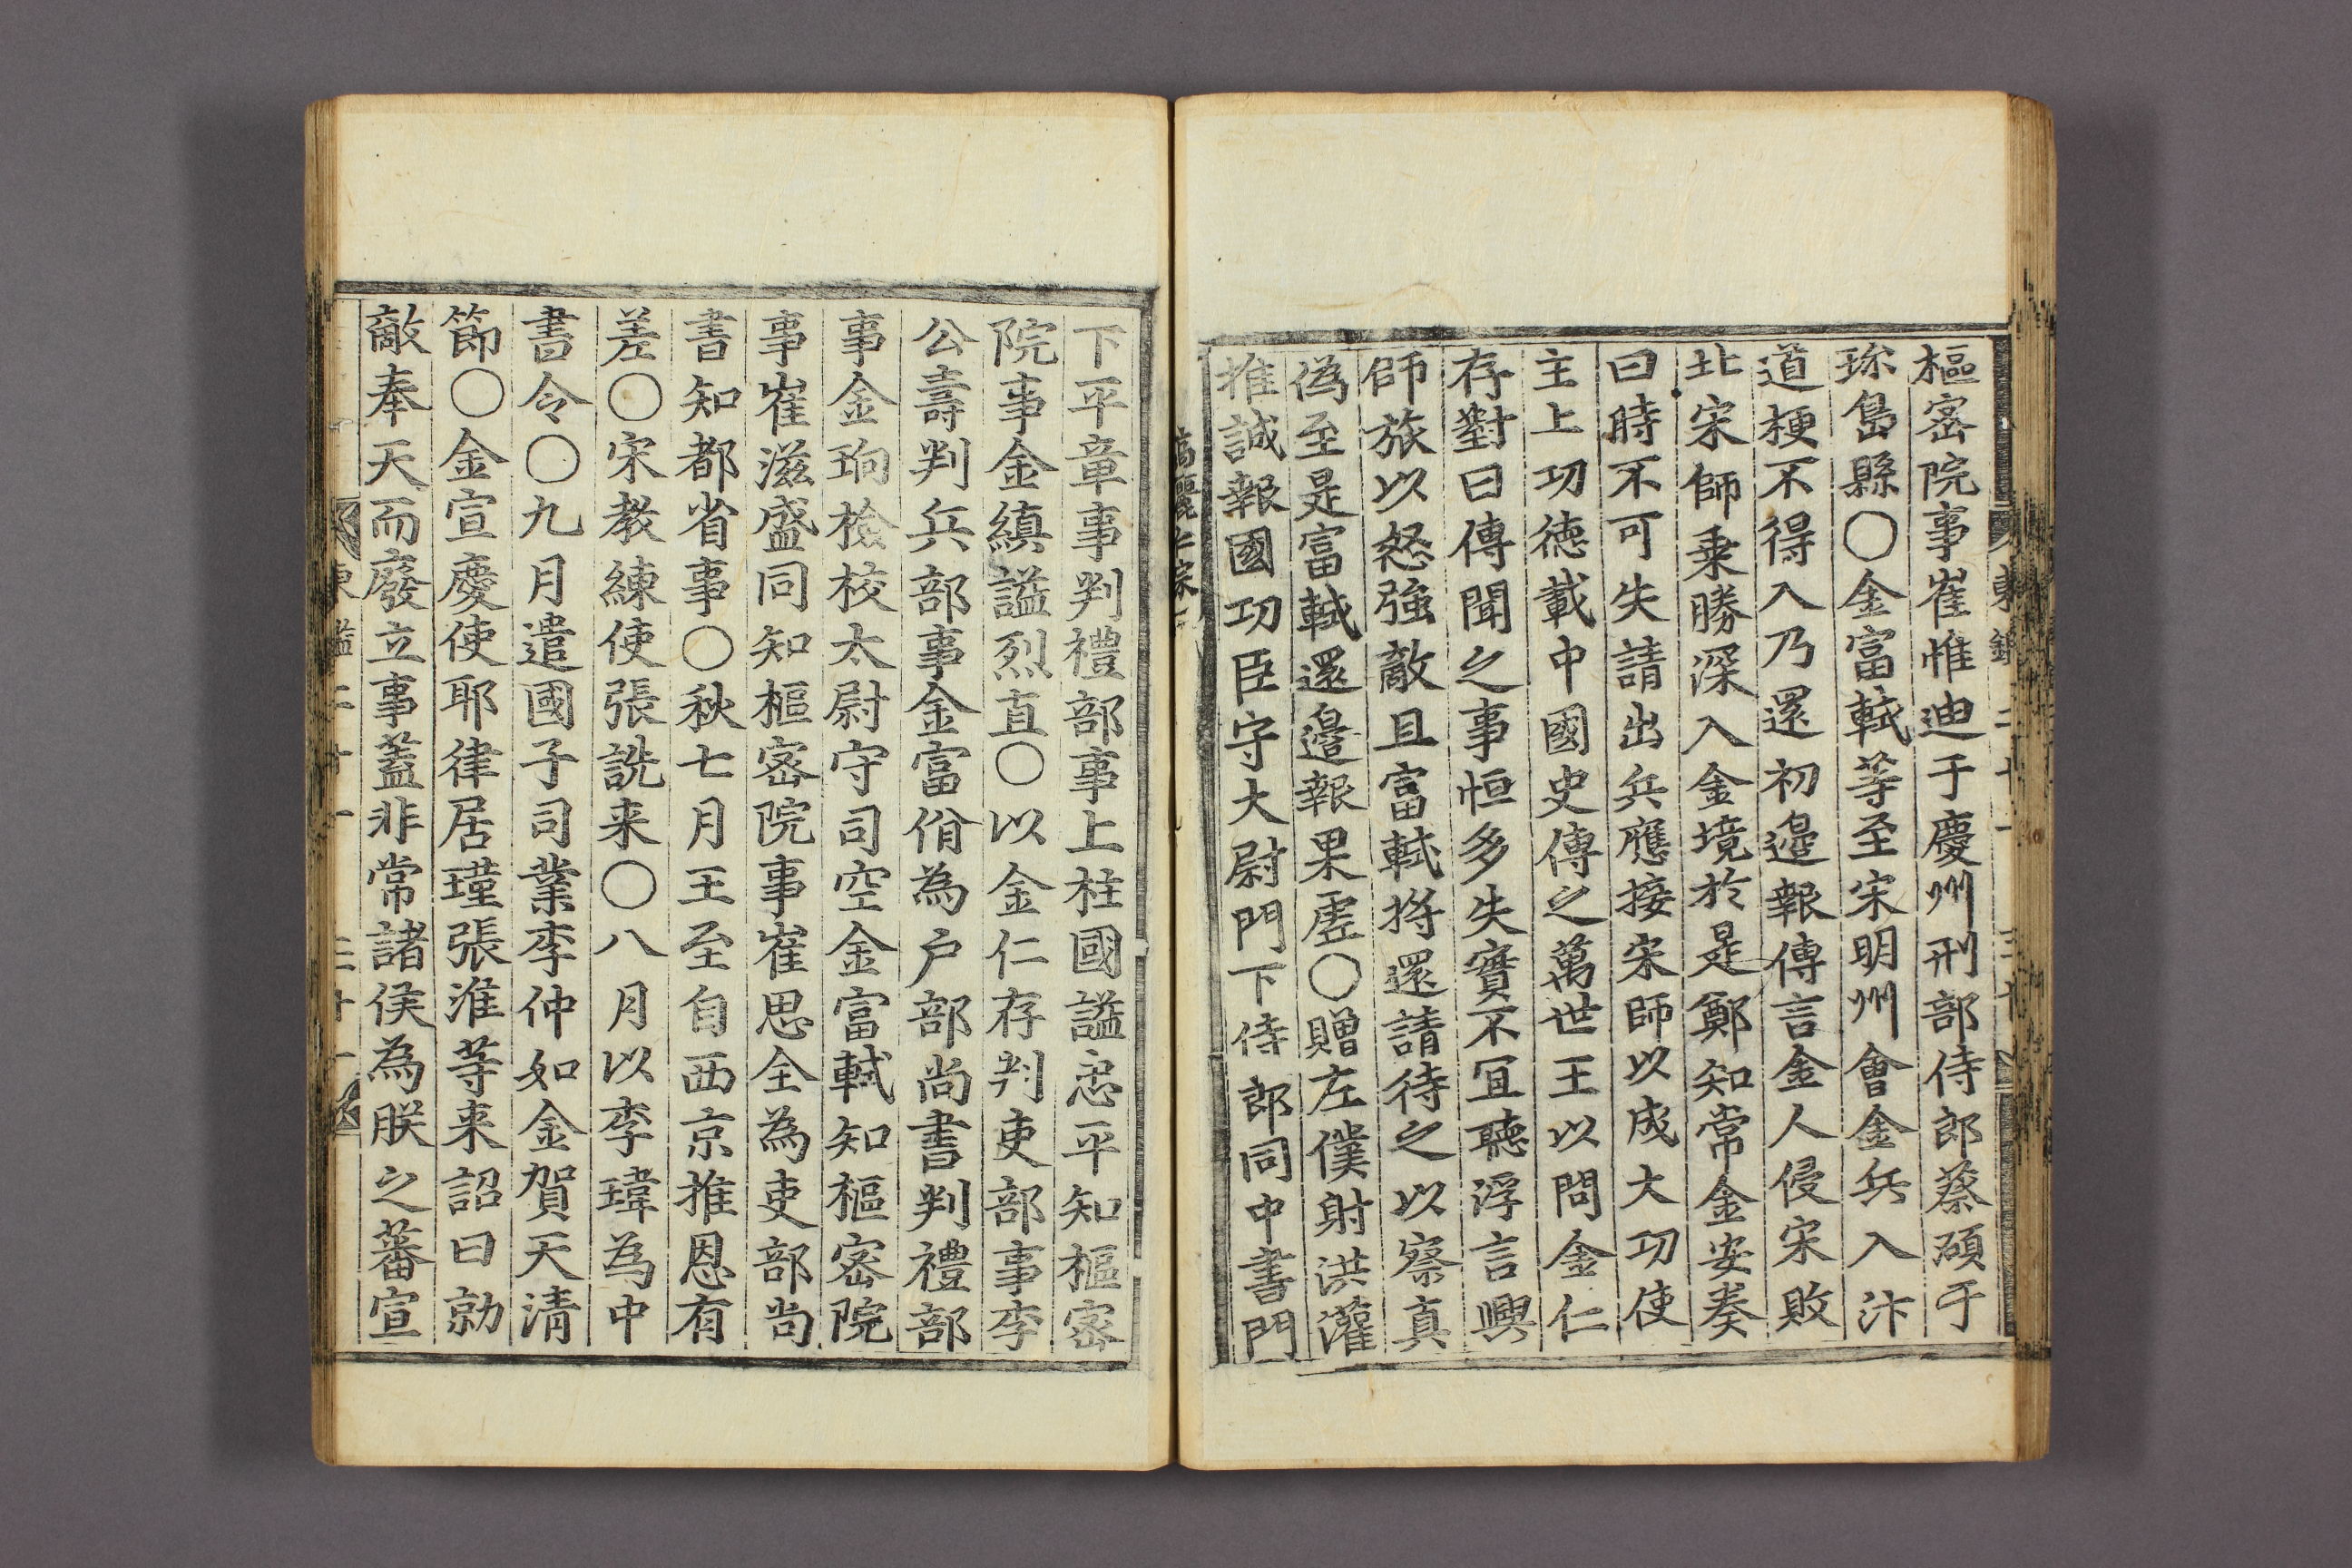 樞宻院事崔惟迪于慶州刑部侍郎蔡碩于
珎島縣○金富軾等至宋明州會金兵入汴
道梗不得入乃還初邉報傳言金人侵宋敗
北宋師乗勝深入金境於是鄭知常金安奏
曰時不可失請出兵應接宋師以成大功使
主上功德載中國史傳之萬世王以問金仁
存對曰傳聞之事恒多失實不冝聴浮言興
師旅以怒強敵且富軾将還請待之以察真
偽至是富軾還邉報果虗○贈左僕射洪灌
推誠報國功臣守大尉門下侍郎同中書門
下平章事判禮部事上柱國謚忠平知樞宻
院事金縝謚烈直○以金仁存判吏部事李
公壽判兵部事金富佾為户部尚書判禮部
事金珦檢校太尉守司空金富軾知樞宻院
事崔滋盛同知樞宻院事崔思全為吏部尚
書知都省事○秋七月王至自西京推恩有
差○宋教練使張詵来○八月以李瑋為中
書令○九月遣國子司業李仲如金賀天清
節○金宣慶使耶律居瑾張淮等来詔曰勍
敵奉天而廢立事蓋非常諸侯為朕之蕃宣